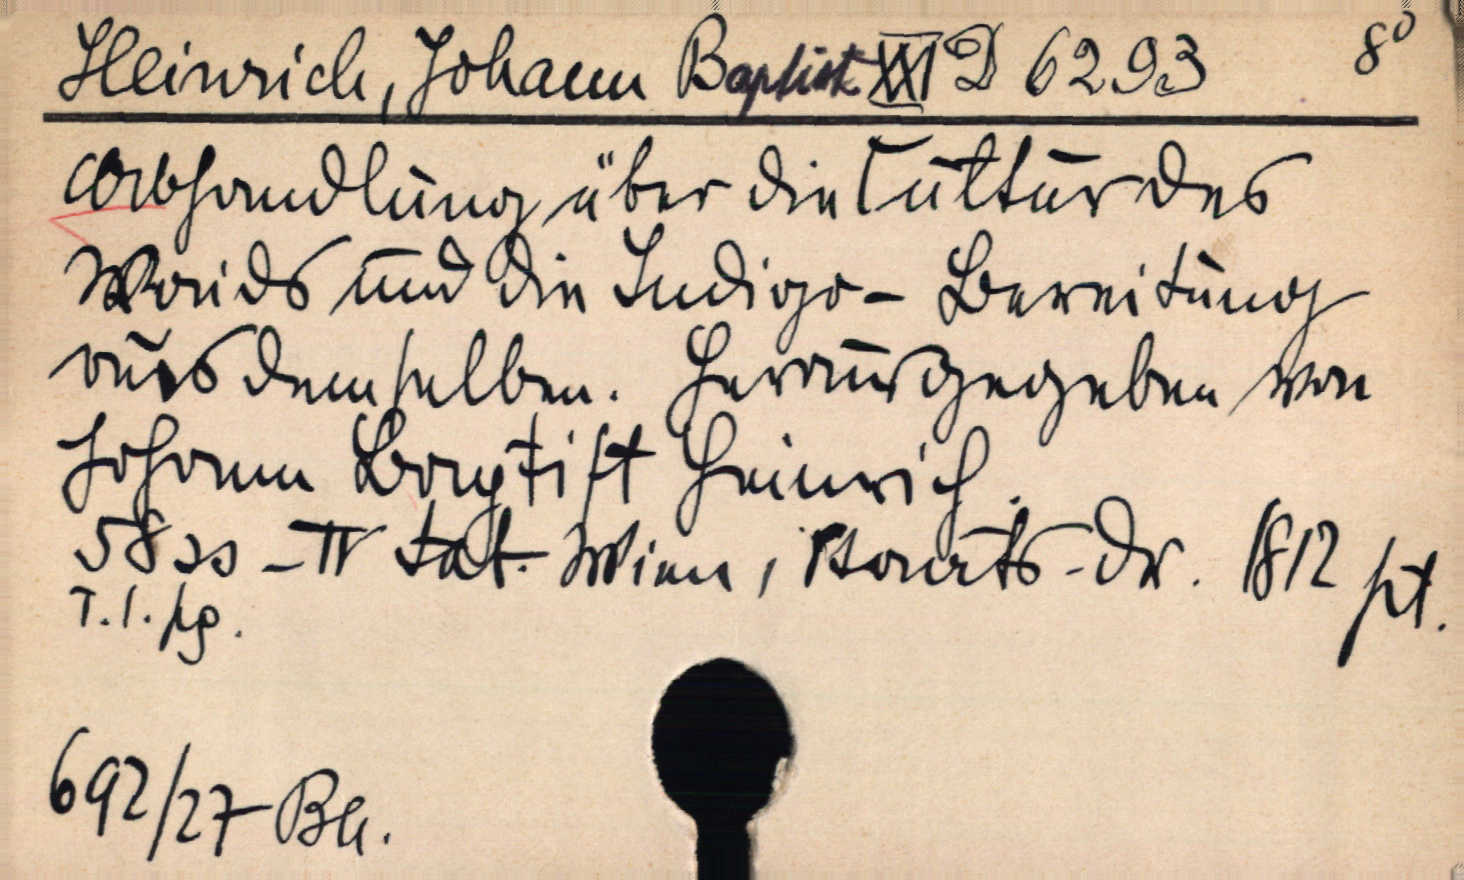 Heinrich, Johann Baptist XXI D 6293 8°
Abhandlung über die Cultur des
Waids und die Indigo- Bereitung
aus demselben. Herausgegeben von
Johann Baptist Heinrich.
58 ss - IV tab. Wien, Staats-Dr. 1812
T. I.
692/27 Bh.